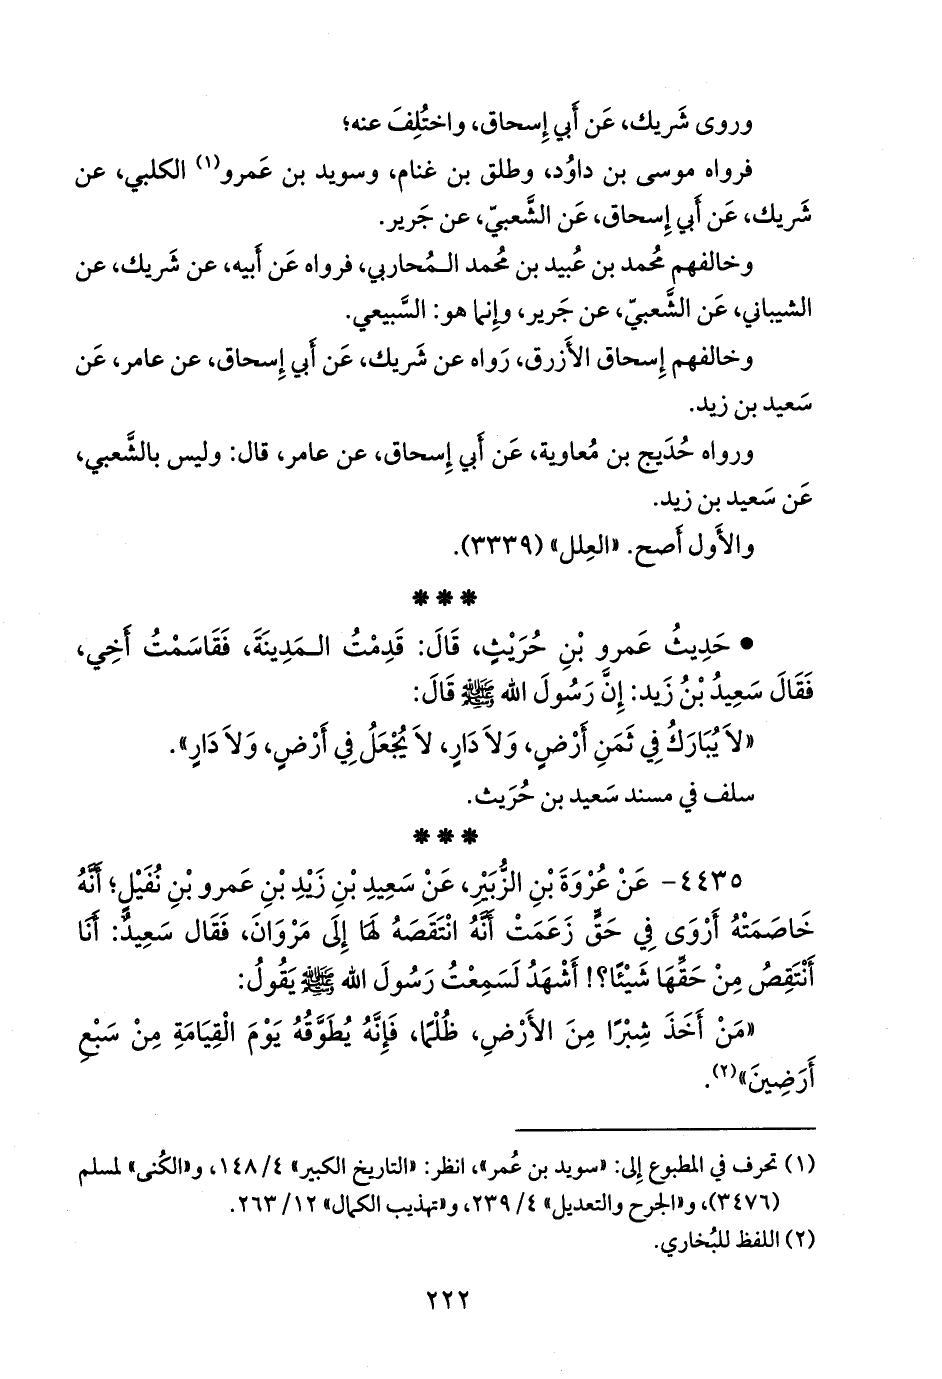 وروى شَريك، عَن أَبي إِسحاق، واختُلِفَ عنه؛
فرواه موسى بن داوُد، وطلق بن غنام، وسويد بن عَمرو(١) الكلبي، عن
شَريك، عَن أَبي إِسحاق، عَن الشَّعبيّ، عن جَرير.
وخالفهم مُحمد بن عُبيد بن مُحمد الـمُحاربي، فرواه عَن أَبيه، عن شَريك، عن
الشيباني، عَن الشَّعبيّ، عن جَرير، وإِنما هو: السَّبيعي.
وخالفهم إِسحاق الأَزرق، رَواه عن شَريك، عَن أَبي إِسحاق، عن عامر، عَن
سَعيد بن زيد.
ورواه حُدَيج بن مُعاوية، عَن أَبي إِسحاق، عن عامر، قال: وليس بالشَّعبي،
عَن سَعيد بن زيد.
والأَول أَصح. «العِلل» (٣٣٣٩).
* * *
• حَدِيثُ عَمرو بْنِ حُرَيْثٍ، قَالَ: قَدِمْتُ الـمَدِينَةَ، فَقَاسَمْتُ أَخِي،
فَقَالَ سَعِيدُ بْنُ زَيد: إِنَّ رَسُولَ الله ﷺ قَالَ:
«لاَ يُبَارَكُ فِي ثَمَنِ أَرْضٍ، وَلاَ دَارٍ، لاَ يُجْعَلُ فِي أَرْضٍ، وَلاَ دَارٍ».
سلف في مسند سَعيد بن حُرَيث.
* * *
٤٤٣٥- عَنْ عُرْوَةَ بْنِ الزُّبَيْرِ، عَنْ سَعِيدِ بْنِ زَيْدِ بْنِ عَمرو بْنِ نُفَيْلٍ؛ أَنَّهُ
خَاصَمَتْهُ أَرْوَى فِي حَقٍّ زَعَمَتْ أَنَّهُ انْتَقَصَهُ لَهَا إِلَى مَرْوَانَ، فَقَال سَعِيدٌ: أَنَا
أَنْتَقِصُ مِنْ حَقِّهَا شَيْئًا؟! أَشْهَدُ لَسَمِعْتُ رَسُولَ الله ﷺ يَقُولُ:
«مَنْ أَخَذَ شِبْرًا مِنَ الأَرْضِ، ظُلْمًا، فَإِنَّهُ يُطَوَّقُهُ يَوْمَ الْقِيَامَةِ مِنْ سَبْعِ
أَرَضِينَ»(٢).
(١) تحرف في المطبوع إلى: «سويد بن عُمر»، انظر: «التاريخ الكبير» ٤/ ١٤٨، و«الكُنى» لمسلم
(٣٤٧٦)، و«الجرح والتعديل» ٤/ ٢٣٩، و«تهذيب الكمال» ١٢/ ٢٦٣.
(٢) اللفظ للبُخاري.
٢٢٢